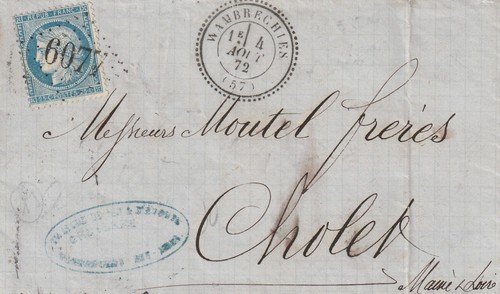 REPUB. FRANC.
6077
WAMBRECHIES
1E 4
AOUT
72
(57)
Messieurs Moutel frères
Cholet
Maine & Loire